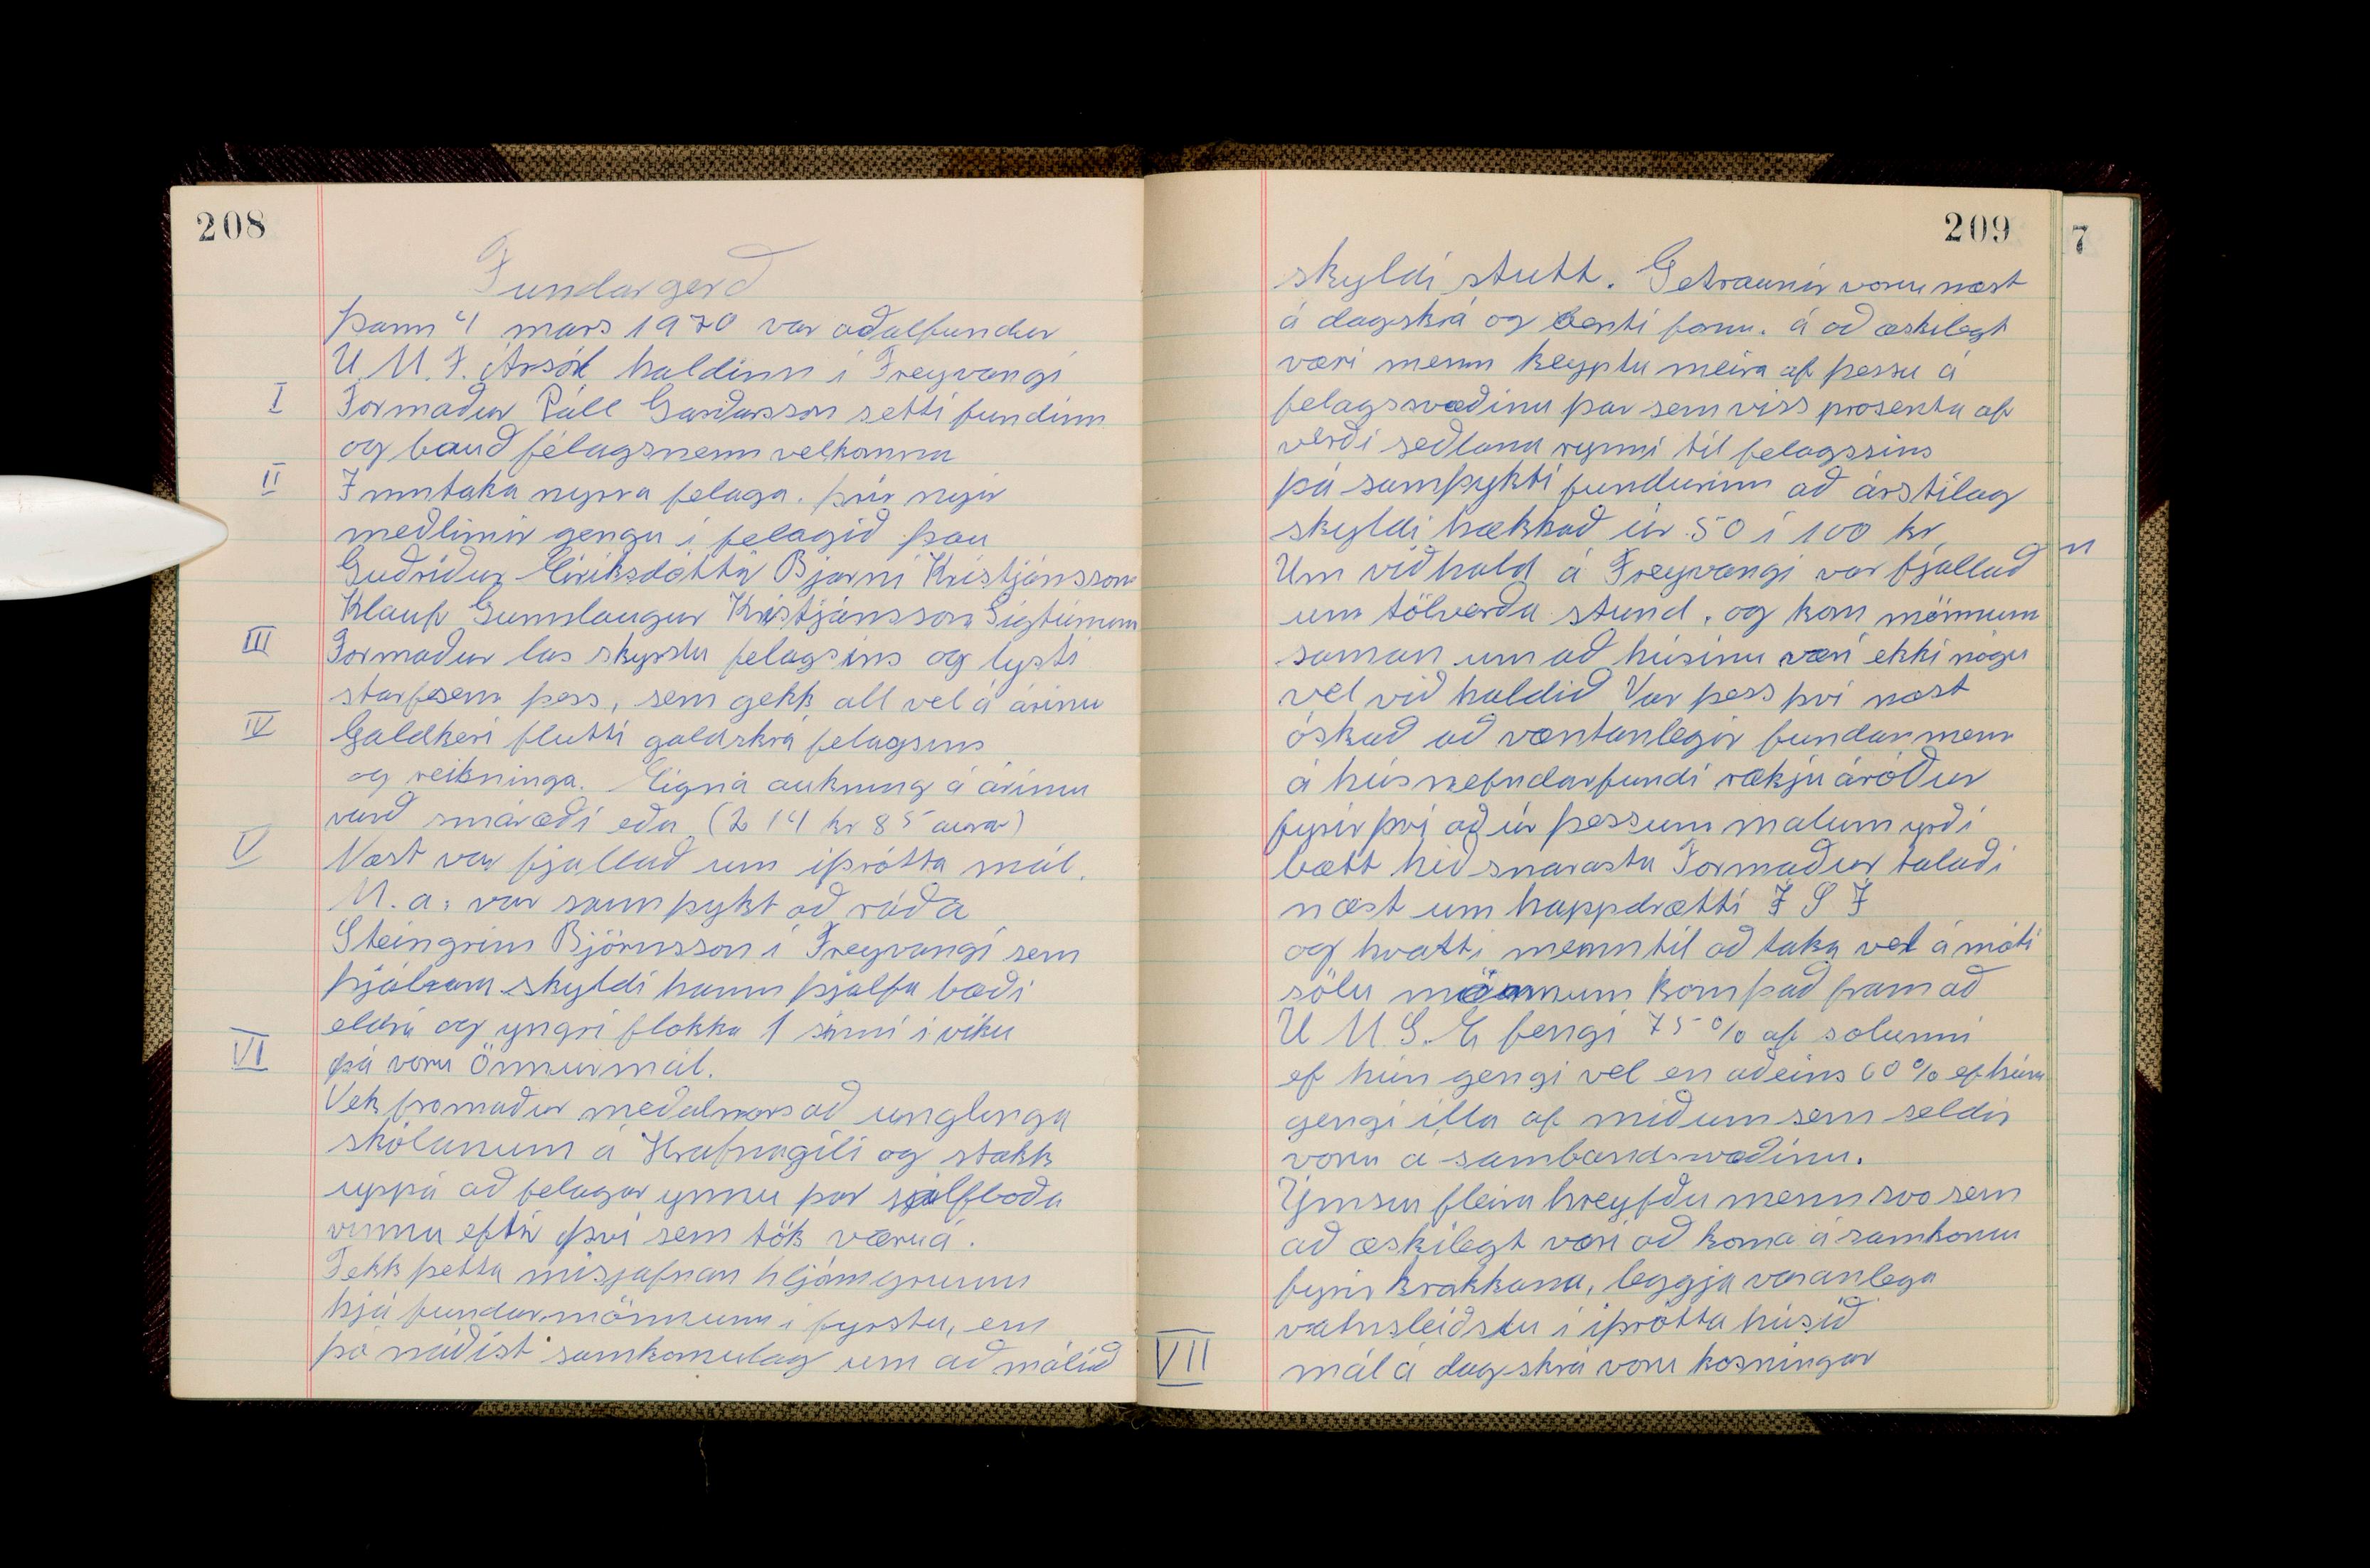 208
Fundargerð
Þann 4 mars 1970 var aðalfundur
U.M.F. Ársól haldinn í Freyvangi
I Formaður Páll Garðarsson setti fundinn
og bauð félagsmenn velkomna
II Inntaka nyrra felaga. þrír nyir
meðlimir gengu í felagið þau
Guðríður Eiríksdóttir Bjarni Kristjánsson
Klauf Gunnlaugur Kristjánsson Sigtúnum
III Formaður las skyrslu felagsins og lysti
starfsem þess, sem gekk all vel á árinu
IV Galdkeri flutti galdskrá felagsins
og reikninga. Eigna aukning á árinu
varð smáræði eða (214 kr 85 aura)
V Næst var fjallað um íþrótta mál.
M.a. var samþykt að ráða
Steingrim Björnsson í Freyvangi sem
þjálvara skyldi hann þjálfa bæði
eldri og yngri flokka 1 sinni í viku
VI þá voru Önnurmál.
Vek formaður meðalnars að unglinga
skólanum á Hrafnagili og stakk
uppá að felagar ynnu þar sjálfboða
vinnu eftir því sem tök væruá.
Fekk þetta misjafnan hljómgrunn
hjá fundarmönnum í fyrstu, en
þó náðist samkomulag um að málið
209
skyldi stutt. Getraunir voru næst
á dagskrá og benti form. á að æskilegt
væri menn keyptu meira af þessu á
felagssvæðinu þar sem viss prosenta af
verði seðlana rynni til felagssins
þá samþykti fundurinn að árstilag
skyldi hækkað úr 50 í 100 kr.
Um viðhald á Freyvangi var fjallað
um tölverða stund. og kom mönnum
saman um að húsinu væri ekki nógu
vel við haldið Var þess því næst
óskað að væntanlegir fundarmenn
á húsnefndarfundi rækju áróður
fyrir því að úr þessum malum yrði
bætt hið snarasta Formaður talaði
næst um happdrætti Í S Í
og hvatti menn til að taka vel á móti
sölu mönnum kom það fram að
U M S. E fengi 75% af solunni
ef hún gengi vel en aðeins 60% ef hún
gengi illa af miðum sem seldir
voru a sambandsvæðinu.
Ýmsu fleira hreyfðu menn svo sem
að æskilegt væri að koma á samkomu
fyrir krakkana, leggja varanlega
vatnsleiðslu í íþrótta húsið
VII mál á dagskrá voru kosningar
7
n